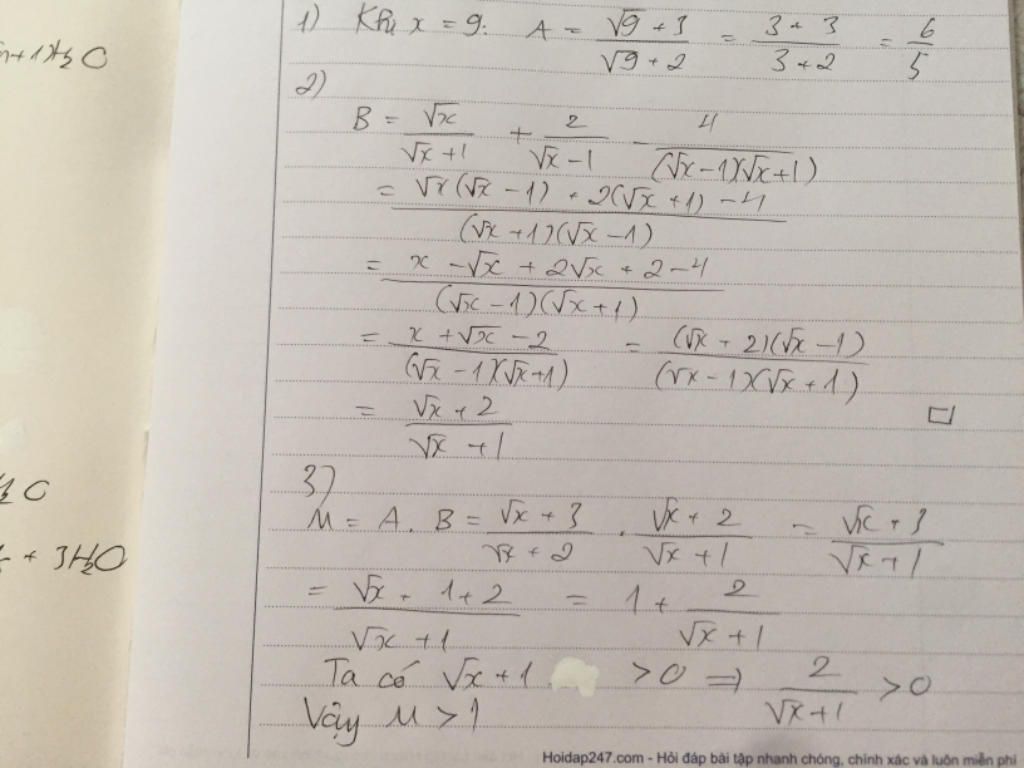 n+1)H₂O
H₂O
+ 3H₂O
1) Khi x = 9: A = (√9 + 3)/(√9 + 2) = (3 + 3)/(3 + 2) = 6/5
2)
B = √x/(√x + 1) + 2/(√x - 1) - 4/((√x - 1)(√x + 1))
= (√x(√x - 1) + 2(√x + 1) - 4)/((√x + 1)(√x - 1))
= (x - √x + 2√x + 2 - 4)/((√x - 1)(√x + 1))
= (x + √x - 2)/((√x - 1)(√x + 1)) = ((√x + 2)(√x - 1))/((√x - 1)(√x + 1))
= (√x + 2)/(√x + 1) □
3)
M = A . B = (√x + 3)/(√x + 2) . (√x + 2)/(√x + 1) = (√x + 3)/(√x + 1)
= (√x + 1 + 2)/(√x + 1) = 1 + 2/(√x + 1)
Ta có √x + 1 > 0 => 2/(√x + 1) > 0
Vậy M > 1
Hoidap247.com - Hỏi đáp bài tập nhanh chóng, chính xác và luôn miễn phí